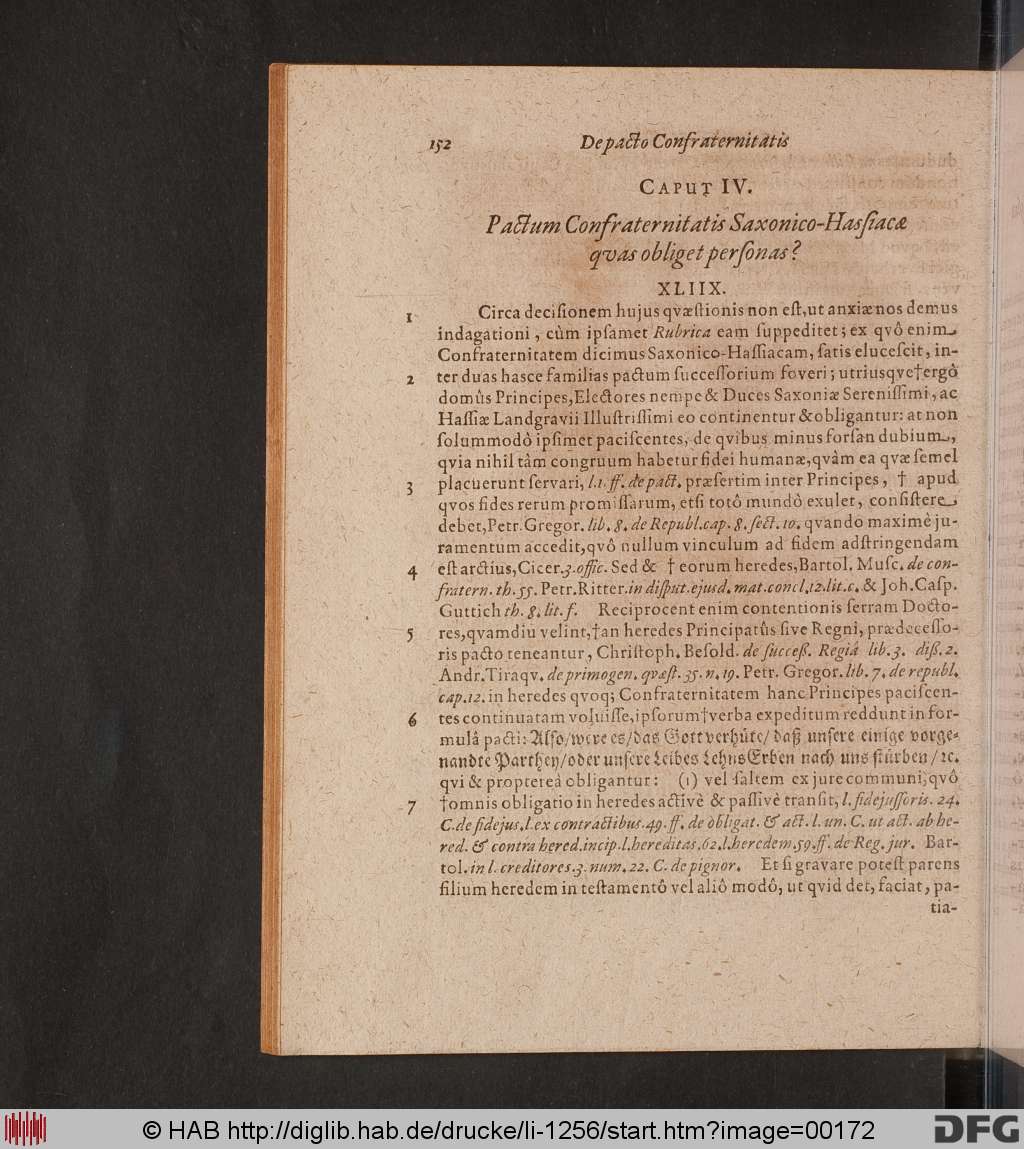 152 De pacto Confraternitatis
CAPUT IV.
Pactum Confraternitatis Saxonico-Hasſiacæ
qvas obliget perſonas?
XLIIX.
1 Circa deciſionem hujus qvæſtionis non eſt, ut anxiæ nos demus
indagationi, cùm ipſamet Rubrica eam ſuppeditet; ex qvô enim
Confraternitatem dicimus Saxonico-Haſſiacam, ſatis eluceſcit, in-
2 ter duas hasce familias pactum ſucceſſorium foveri; utriusqve†ergò
domûs Principes, Electores nempe & Duces Saxoniæ Sereniſſimi, ac
Haſſiæ Landgravii Illuſtriſſimi eo continentur & obligantur: at non
ſolummodò ipſimet paciſcentes, de qvibus minus forſan dubium,
qvia nihil tàm congruum habetur fidei humanæ, qvàm ea qvæ ſemel
placuerunt ſervari, l.1. ff. de pact. præſertim inter Principes, † apud
3 qvos fides rerum promiſſarum, etſi totô mundô exulet, conſiſtere
debet, Petr. Gregor. lib. 8. de Republ. cap. 8. ſect. 10. qvando maximè ju-
ramentum accedit, qvô nullum vinculum ad fidem adſtringendam
4 eſt arctius, Cicer. 3. offic. Sed & † eorum heredes, Bartol. Muſc. de con-
fratern. th. 55. Petr. Ritter. in diſput. ejusd. mat. concl. 12. lit. c. & Joh. Caſp.
Guttich th. 8. lit. f. Reciprocent enim contentionis ſerram Docto-
5 res, qvamdiu velint, †an heredes Principatûs ſive Regni, prædeceſſo-
ris pacto teneantur, Chriſtoph. Beſold. de ſucceß. Regiâ lib. 3. diß. 2.
Andr. Tiraqv. de primogen. qvæſt. 35. n. 19. Petr. Gregor. lib. 7. de republ.
cap. 12. in heredes qvoq; Confraternitatem hanc Principes paciſcen-
6 tes continuatam voluiſſe, ipſorum†verba expeditum reddunt in for-
mulâ pacti: Alſo/were es/das Gott verhüte/ daß unſere einige vorge-
nandte Parthey/oder unſere Leibes LehnsErben nach uns ſtürben/ ꝛc.
qvi & proptereà obligantur: (1) vel ſaltem ex jure communi, qvô
7 †omnis obligatio in heredes activè & paſſivè tranſit, l. fidejuſſoris. 24.
C. de fidejus. l. ex contractibus. 49. ff. de obligat. & act. l. un. C. ut act. ab he-
red. & contra hered. incip. l. hereditas. 62. l. heredem. 59. ff. de Reg. jur. Bar-
tol. in l. creditores. 3. num. 22. C. de pignor. Et ſi gravare poteſt parens
filium heredem in teſtamentô vel aliô modô, ut qvid det, faciat, pa-
tia-
© HAB http://diglib.hab.de/drucke/li-1256/start.htm?image=00172
DFG